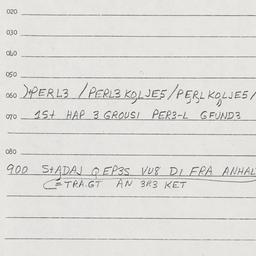 020
030
040
050
060 )+PERL3 /PERL3 KOLJE5/PERL KOLJE5/
070 1St HAP 3 GROUSI PER3-L GFUND3
080
900 StADAJ QEP3S VU8 DI FPA ANHAL
C=TRA.GT AN 3R3 KET